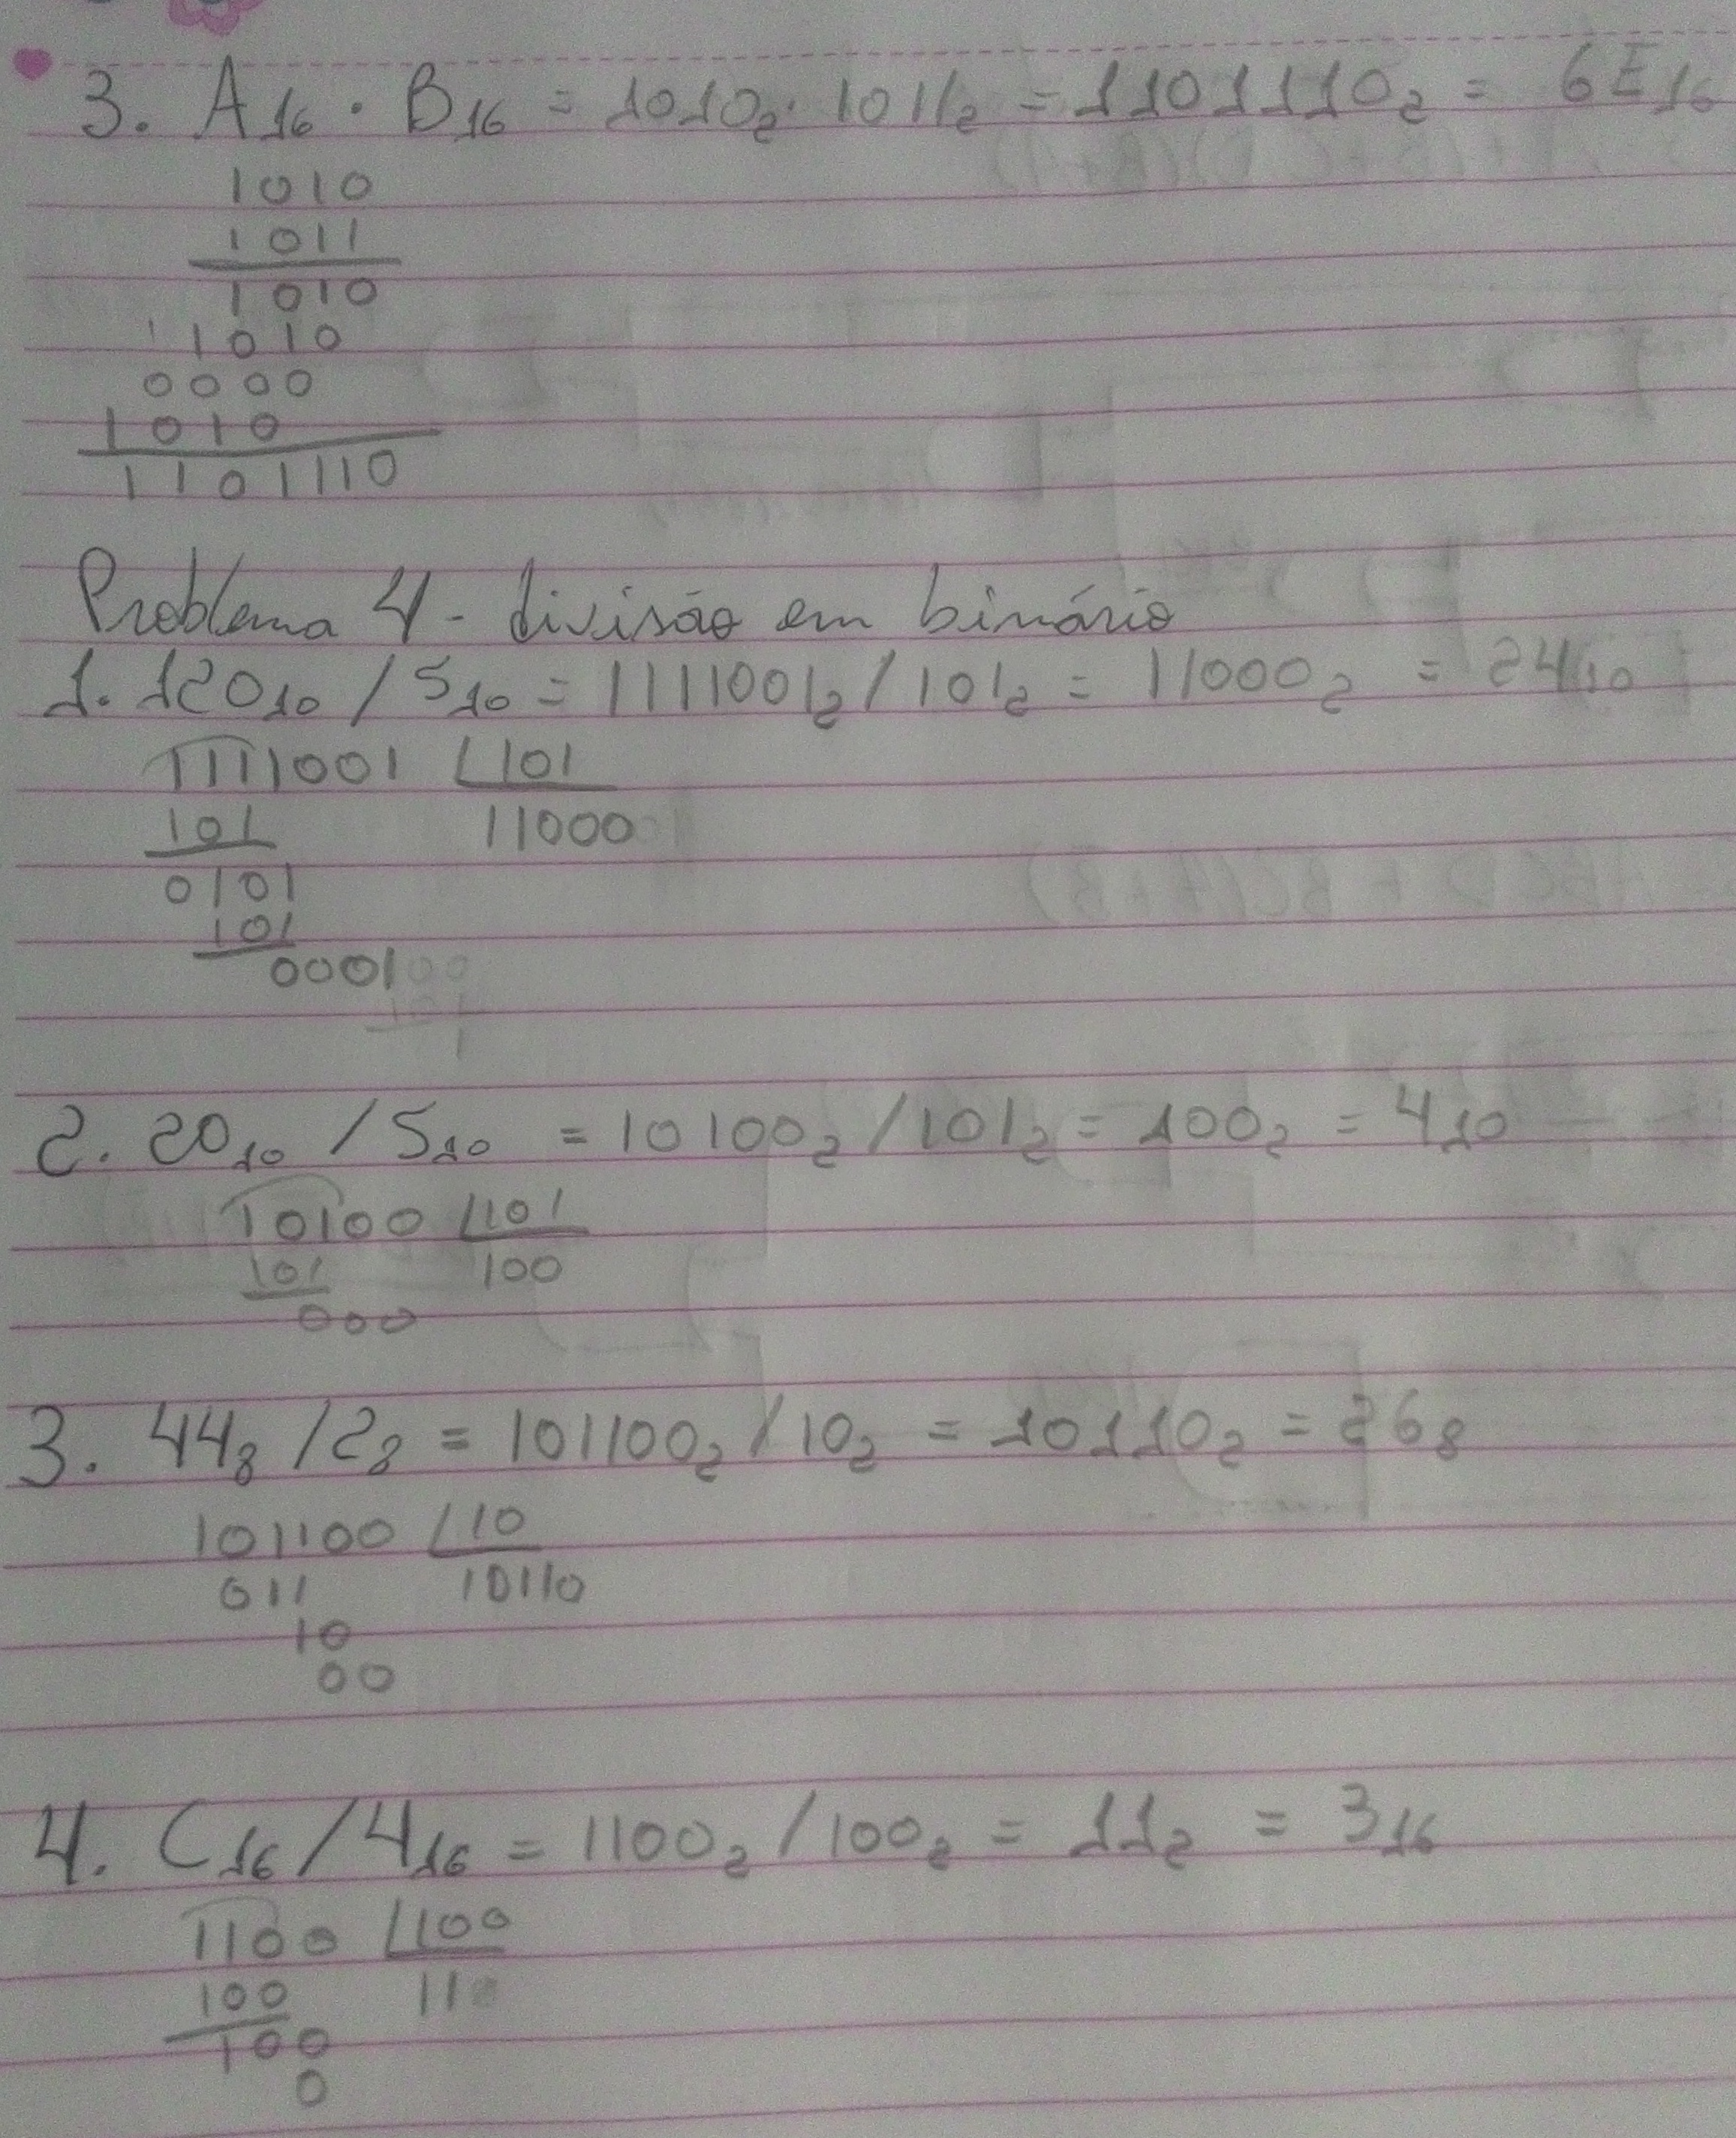 3. A₁₆ · B₁₆ = 1010₂ · 1011₂ = 1101110₂ = 6E₁₆
1010
1011
1010
1010
0000
1010
1101110
Problema 4 - divisão em binário
1. 120₁₀ / 5₁₀ = 1111001₂ / 101₂ = 11000₂ = 24₁₀
1111001 101
101 11000
0101
101
0001
2. 20₁₀ / 5₁₀ = 10100₂ / 101₂ = 100₂ = 4₁₀
10100 101
101 100
000
3. 44₈ / 2₈ = 101100₂ / 10₂ = 10110₂ = 26₈
101100 10
011 10110
10
00
4. C₁₆ / 4₁₆ = 1100₂ / 100₂ = 11₂ = 3₁₆
1100 100
100 11
100
0